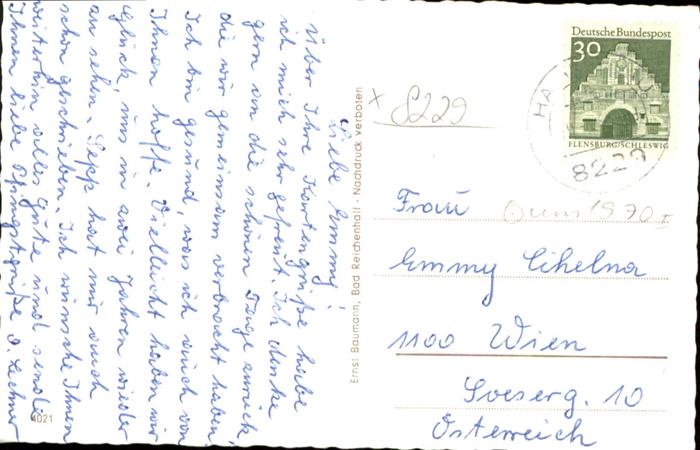 Liebe Emmy!
Über Ihre Kartengrüße habe
ich mich sehr gefreut. Ich denke
gern an die schönen Tage zurück,
die wir gemeinsam verbracht haben.
Ich bin gesund, was ich auch von
Ihnen hoffe. Vielleicht haben wir
Glück, uns in zwei Jahren wieder
zu sehen. Sepp hat mir auch
schon geschrieben. Ich wünsche Ihnen
weiterhin alles Gute und sende
Ihnen liebe Pfingstgrüße J. Lechner
4021
Ernst Baumann, Bad Reichenhall - Nachdruck verboten
Deutsche Bundespost
30
FLENSBURG/SCHLESWIG
8229
x 8229
1970
Frau
Emmy Cihelna
1100 Wien
10
Österreich